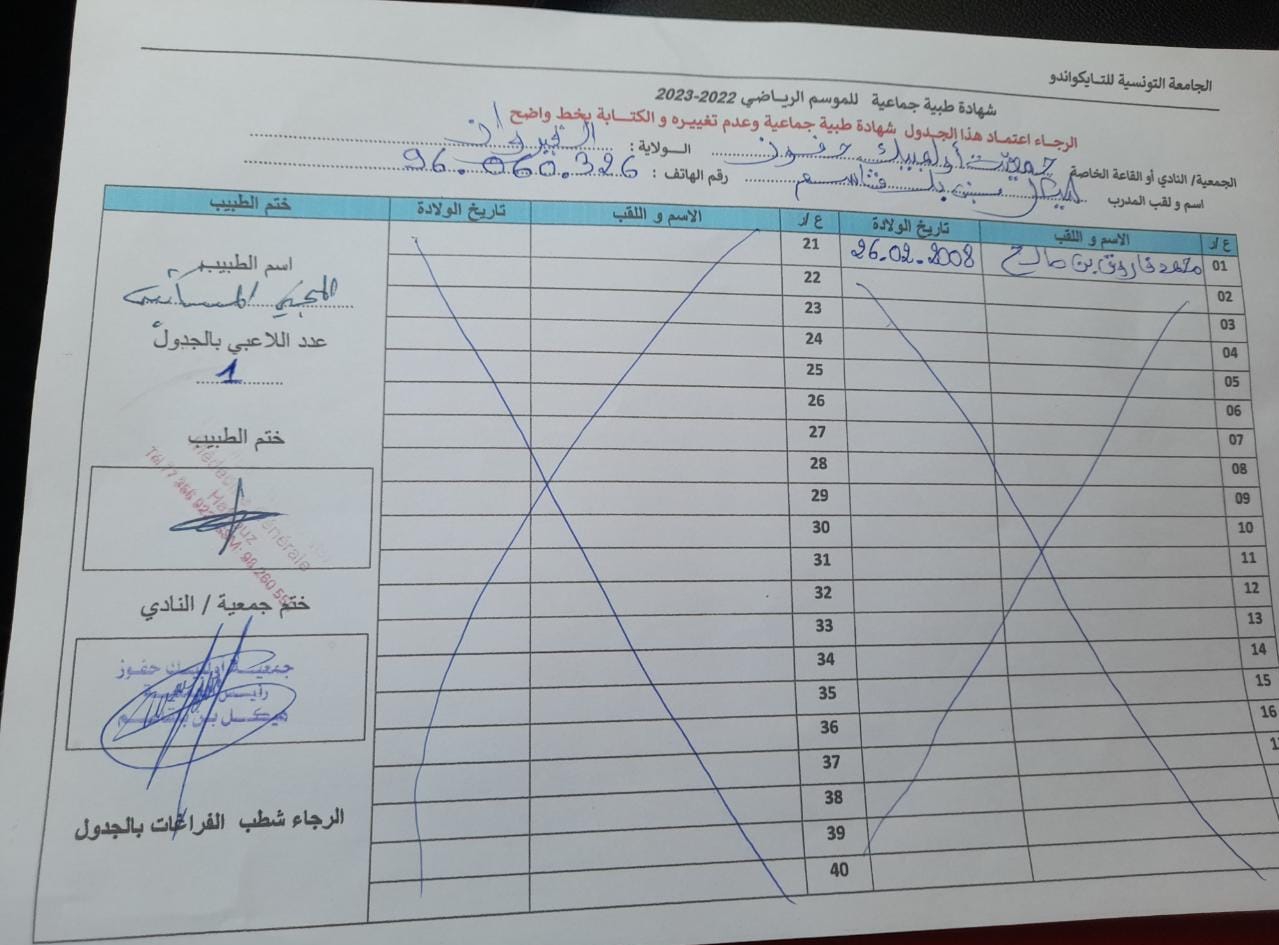 الجامعة التونسية للتايكواندو
شهادة طبية جماعية للموسم الرياضي 2022-2023
الرجاء اعتماد هذا الجدول شهادة طبية جماعية وعدم تغييره و الكتابة بخط واضح
الجمعية/ النادي أو القاعة الخاصة جمعية أولمبيك حفوز الولاية : القيروان
اسم و لقب المدرب هيكل بن بلقاسم رقم الهاتف : 96.060.326
ع/ر الاسم و اللقب تاريخ الولادة ع/ر الاسم و اللقب تاريخ الولادة ختم الطبيب
01 محمد فاروق بن صالح 26.02.2008 21
02 22
03 23
04 24
05 25
06 26
07 27
08 28
09 29
10 30
11 31
12 32
13 33
14 34
15 35
16 36
37
38
39
40
اسم الطبيب
عدد اللاعبي بالجدول
1
ختم الطبيب
Médecine Générale
Haffouz
ختم جمعية / النادي
جمعية اولمبيك حفوز
رئيس الجمعية
هيكل بن بلقاسم
الرجاء شطب الفراغات بالجدول